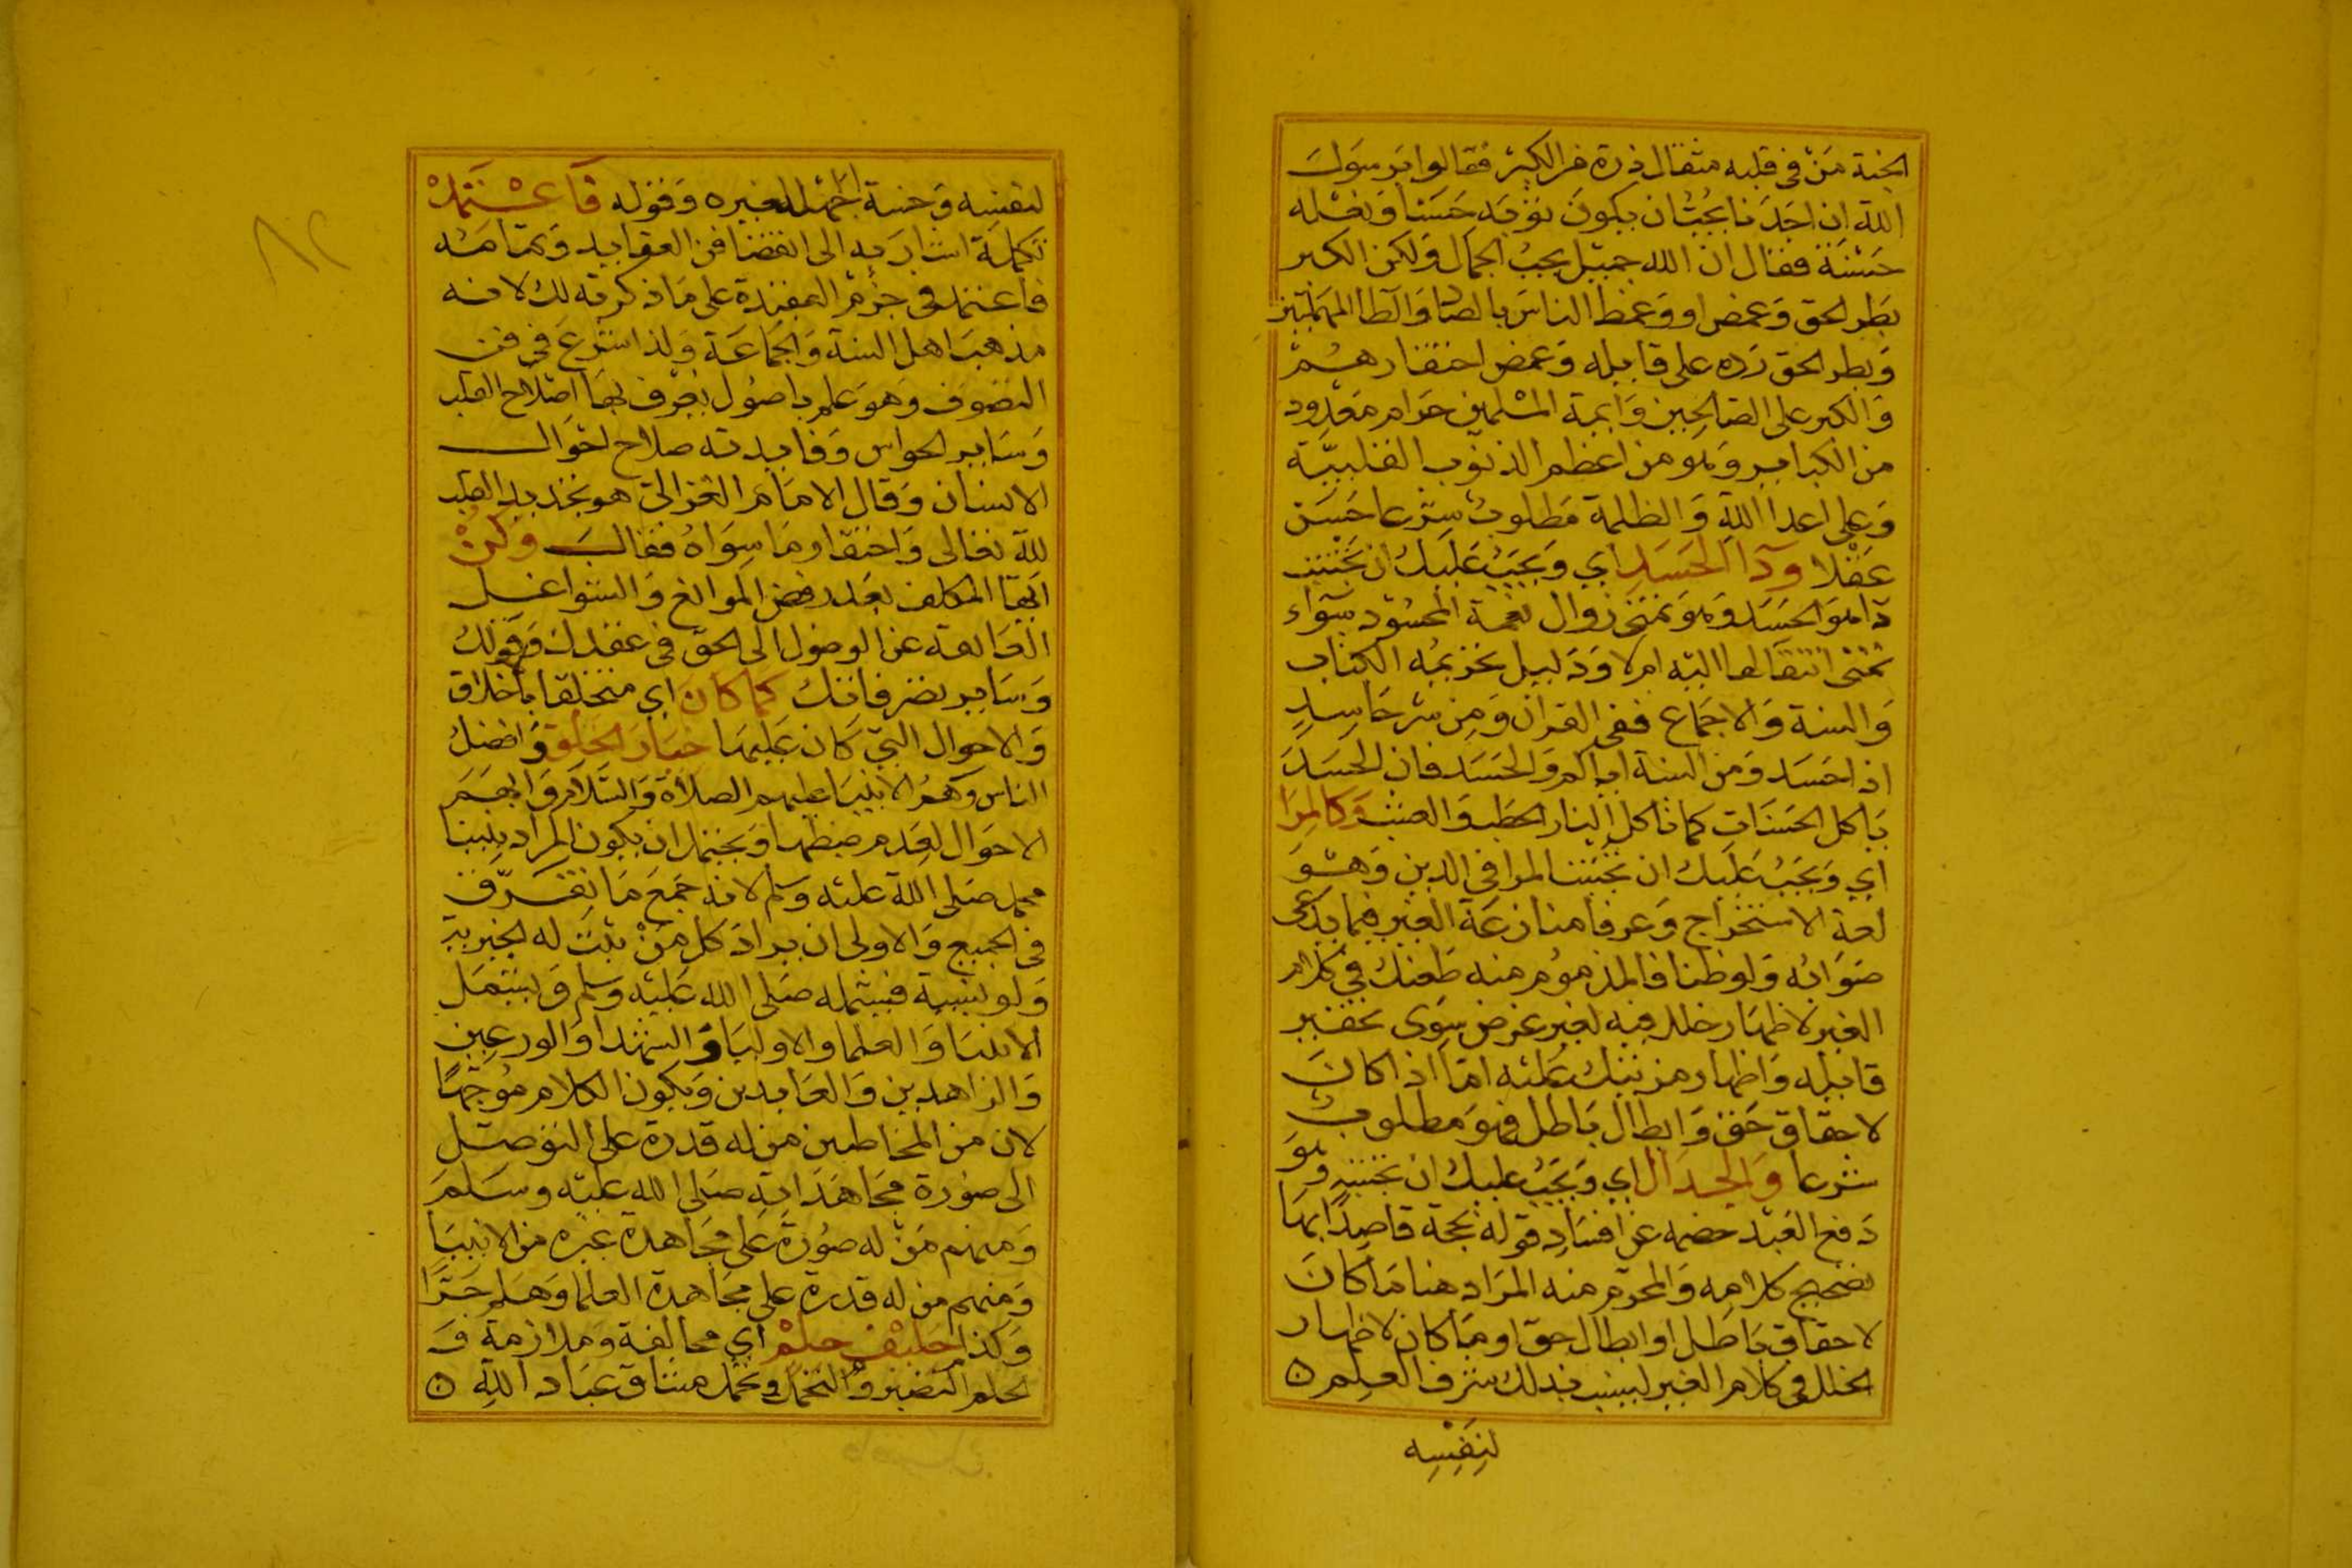 الجنة من في قلبه مثقال ذرة من الكبر فقالوا يرسول
الله ان احدنا يحب ان يكون ثوبه حسنا ونعله
حسنة فقال ان الله جميل يحب الجمال ولكن الكبر
بطر الحق وغمص او وغمط الناس بالصاد والطا المهملتين
وبطر الحق رده على قايله وغمص احتقارهم
والكبر على الصالحين وايمة المسلمين حرام معدود
من الكباير وهو من اعظم الذنوب القلبية
وعلى اعدا الله والظلمة مطلوب شرعا حسن
عقلا ودا الحسد اي ويجب عليك ان تجتنب
دا هو الحسد وهو تمني زوال نعمة المحسود سواء
تمنى انتقالها اليه ام لا ودليل تحريمه الكتاب
والسنة والاجماع ففي القران ومن شر حاسد
اذا حسد ومن السنة اياكم والحسد فان الحسد
ياكل الحسنات كما تاكل النار الحطب والعشب وكالمرا
اي ويجب عليك ان تجتنب المرا في الدين وهو
لغة الاستخراج وعرفا منازعة الغير فيما يدعى
صوابه ولو ظنا فالمذموم منه طعنك في كلام
الغير لاظهار خلل فيه لغير غرض سوى تحقير
قايله واظهار مزيتك عليه اما اذا كان
لاحقاق حق وابطال باطل فهو مطلوب
شرعا والجدال اي ويجب عليك ان تجتنبه وهو
دفع العبد خصمه عن افساد قوله بحجة قاصدا بها
تصحيح كلامه والمحرم منه المراد هنا ما كان
لاحقاق باطل او ابطال حق او ما كان لاظهار
الخلل في كلام الغير لينسب بذلك شرف العلم
لنفسه
لنفسه وخسة الجهل لغيره وقوله فاعتمد
تكملة اشار به الى انقضا فن العقايد وتمامه
فاعتمد في جزم العقيدة على ما ذكرته لك لانه
مذهب اهل السنة والجماعة ولذا شرع في فن
التصوف وهو علم باصول يعرف بها اصلاح القلب
وساير الحواس وفايدته صلاح احوال
الانسان وقال الامام الغزالي هو تجريد القلب
لله تعالى واحتقار ما سواه فقال وكن
ايها المكلف بعد رفض الموانع والشواغل
العالقة عن الوصول الى الحق في عقدك وقولك
وساير تصرفاتك كما كان اي متخلقا باخلاق
والاحوال التي كان عليها خيار الخلق وافضل
الناس وهم الانبيا عليهم الصلاة والسلام وابهم
الاحوال لعدم ضبطها ويحتمل ان يكون المراد نبينا
محمد صلى الله عليه وسلم لانه جمع ما تفرق
في الجميع والاولى ان يراد كل من ثبت له الخيرية
ولو نسبية فيشمله صلى الله عليه وسلم ويشمل
الانبيا والعلما والاوليا والشهدا والورعين
والزاهدين والعابدين ويكون الكلام موجها
لان من المخاطبين من له قدرة على التوصل
الى صورة مجاهداته صلى الله عليه وسلم
ومنهم من له صورة على مجاهدة غيره من الانبيا
ومنهم من له قدرة على مجاهدة العلما وهلم جرا
وكذا حليف حلم اي محالفة وملازمة ف
لحلم التصبر والتحمل وتحمل مشاق عباد الله